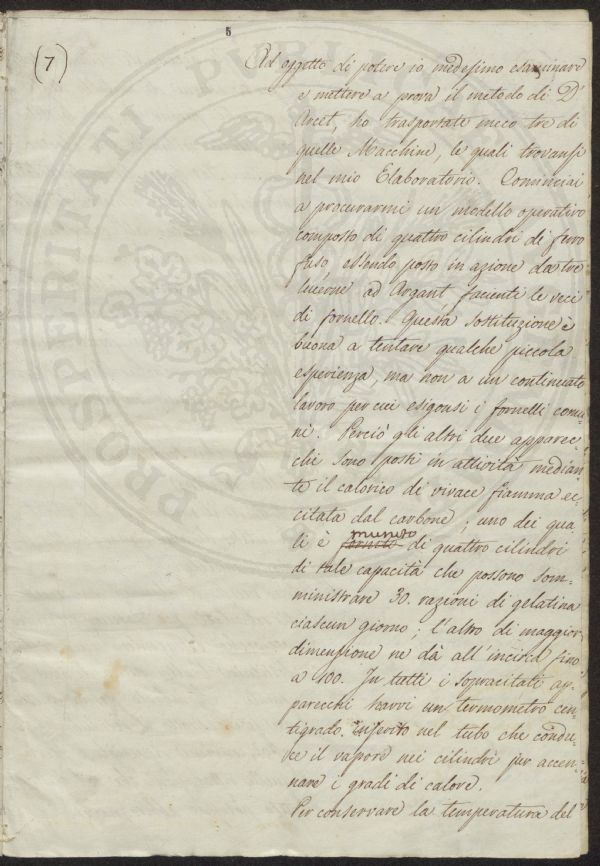 5
(7)
Ad oggetto di potere io medesimo esaminare
e mettere a prova il metodo di D'
Arcet, ho trasportate meco tre di
quelle Macchine, le quali trovansi
nel mio Elaboratorio. Cominciai
a procurarmi un modello operativo
composto di quattro cilindri di ferro
fuso, essendo posto in azione da tre
lucerne ad Argant facienti le veci
di fornello. Questa sostituzione è
buona a tentare qualche piccola
esperienza, ma non a un continuato
lavoro per cui esigonsi i fornelli comu-
ni. Perciò gli altri due apparec-
chi sono posti in attività median-
te il calorico di vivace fiamma ec-
citata dal carbone; uno dei qua
li è munito di quattro cilindri
di tale capacità che possono som-
ministrare 30. razioni di gelatina
ciascun giorno; l'altro di maggior
dimensione ne dà all'incirca fino
a 100. In tutti i sopracitati ap-
parecchi havvi un termometro cen-
tigrado inserito nel tubo che condu-
ce il vapore nei cilindri per accen-
nare i gradi di calore.
Per conservare la temperatura del
PROSPERITATI PUBLI